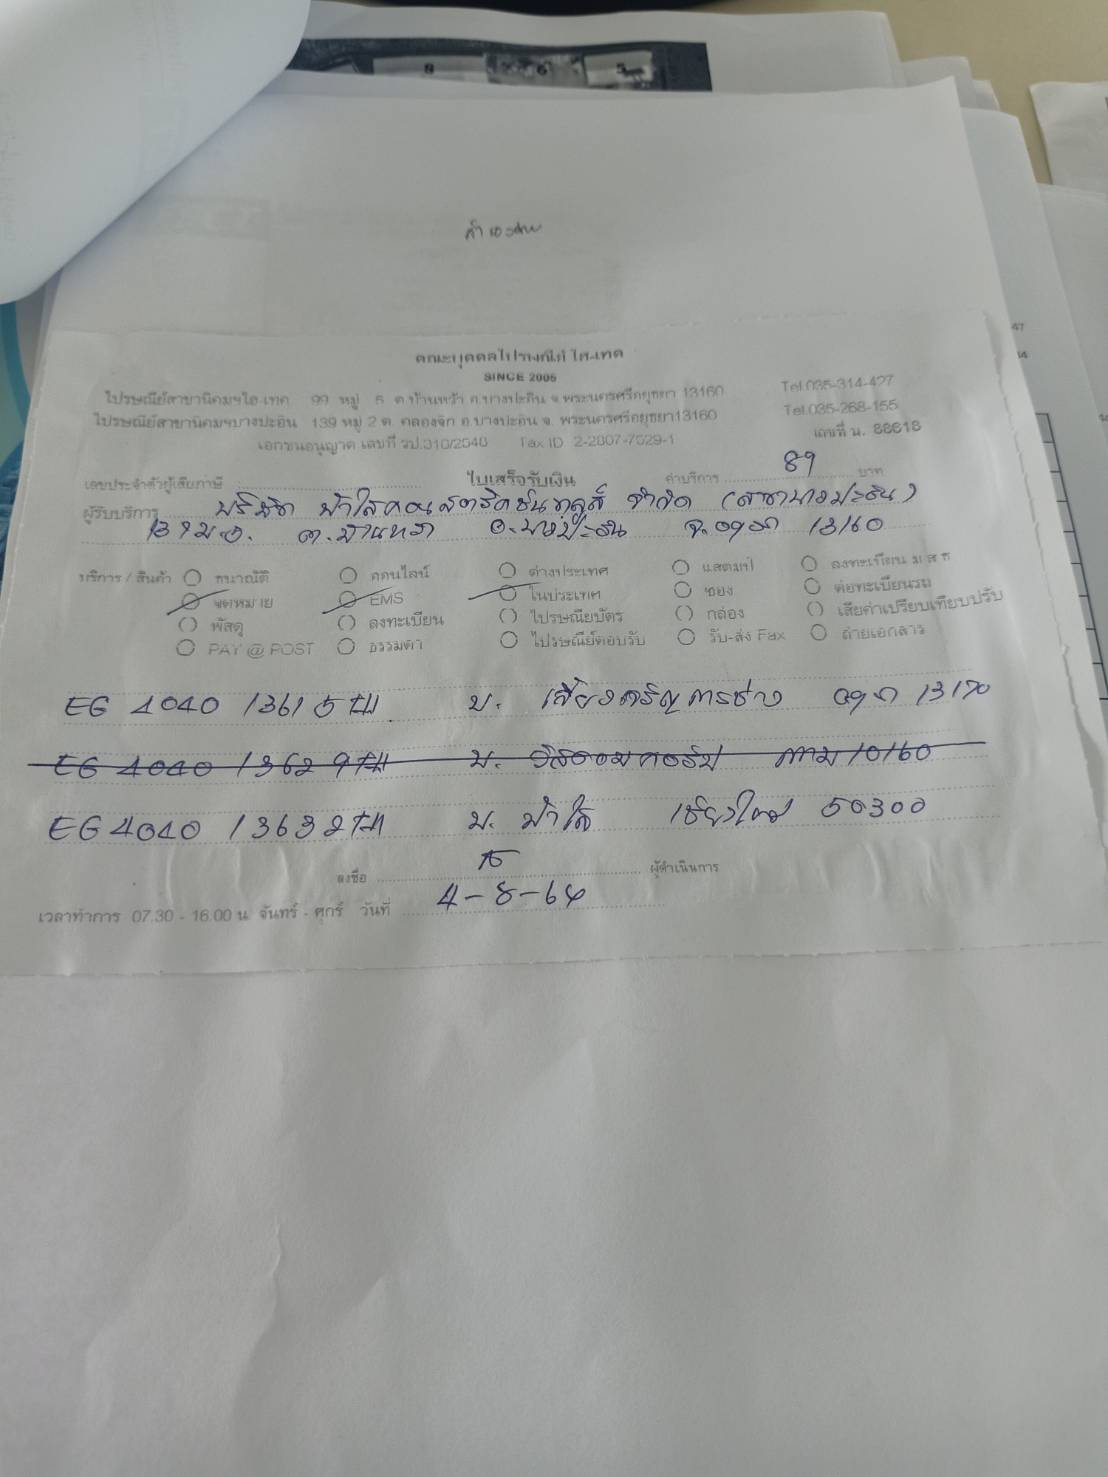 8 6 5
คณะบุคคลไปรษณีย์ ไฮ-เทค
SINCE 2005
ไปรษณีย์สาขานิคมฯไฮ-เทค 99 หมู่ 5 ต.บ้านหว้า อ.บางปะอิน จ.พระนครศรีอยุธยา 13160 Tel.035-314-427
ไปรษณีย์สาขานิคมฯบางปะอิน 139 หมู่ 2 ต. คลองจิก อ.บางปะอิน จ. พระนครศรีอยุธยา13160 Tel.035-268-155
เอกชนอนุญาต เลขที่ รป.310/2548 Tax ID 2-2807-7529-1 เลขที่ น. 88618
เลขประจำตัวผู้เสียภาษี ใบเสร็จรับเงิน ค่าบริการ 89 บาท
ผู้รับบริการ บริษัท ฟ้าใสคอนสตรัคชั่นทูลส์ จำกัด (สาขาบางปะอิน)
139 ม.2. ต.บ้านหว้า อ.บางปะอิน จ.อยุธยา 13160
บริการ / สินค้า ธนาณัติ ออนไลน์ ต่างประเทศ แสตมป์ ลงทะเบียน ม ส ท
จดหมาย EMS ในประเทศ ซอง ต่อทะเบียนรถ
พัสดุ ลงทะเบียน ไปรษณียบัตร กล่อง เสียค่าเปรียบเทียบปรับ
PAY @ POST ธรรมดา ไปรษณีย์ตอบรับ รับ-ส่ง Fax ถ่ายเอกสาร
EG 4040 1361 5 TH บ. เฮียงเจริญการช่าง อยุธยา 13170
EG 4040 1362 9 TH บ. กทม 10160
EG 4040 1363 2 TH บ. ฟ้าใส เชียงใหม่ 50300
ลงชื่อ ผู้ดำเนินการ
เวลาทำการ 07.30 - 16.00 น. จันทร์ - ศุกร์ วันที่ 4-8-64